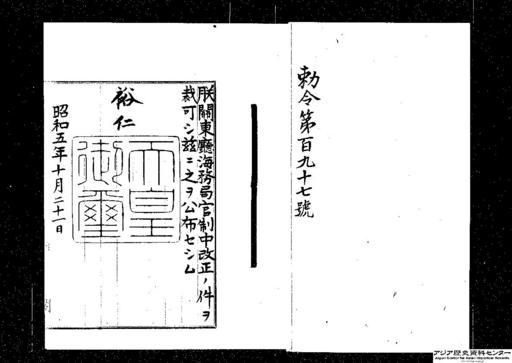 勅令第百九十七號
朕關東廳海務局官制中改正ノ件ヲ
裁可シ茲ニ之ヲ公布セシム
裕仁
天皇御璽
昭和五年十月二十一日
アジア歴史資料センター
Japan Center for Asian Historical Records